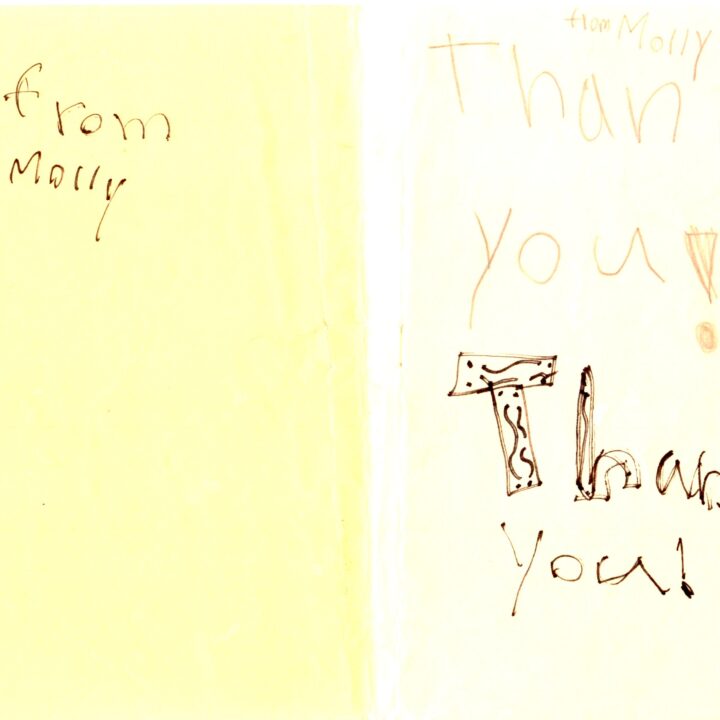 from
Molly
from Molly
Than
you!
Than
you!